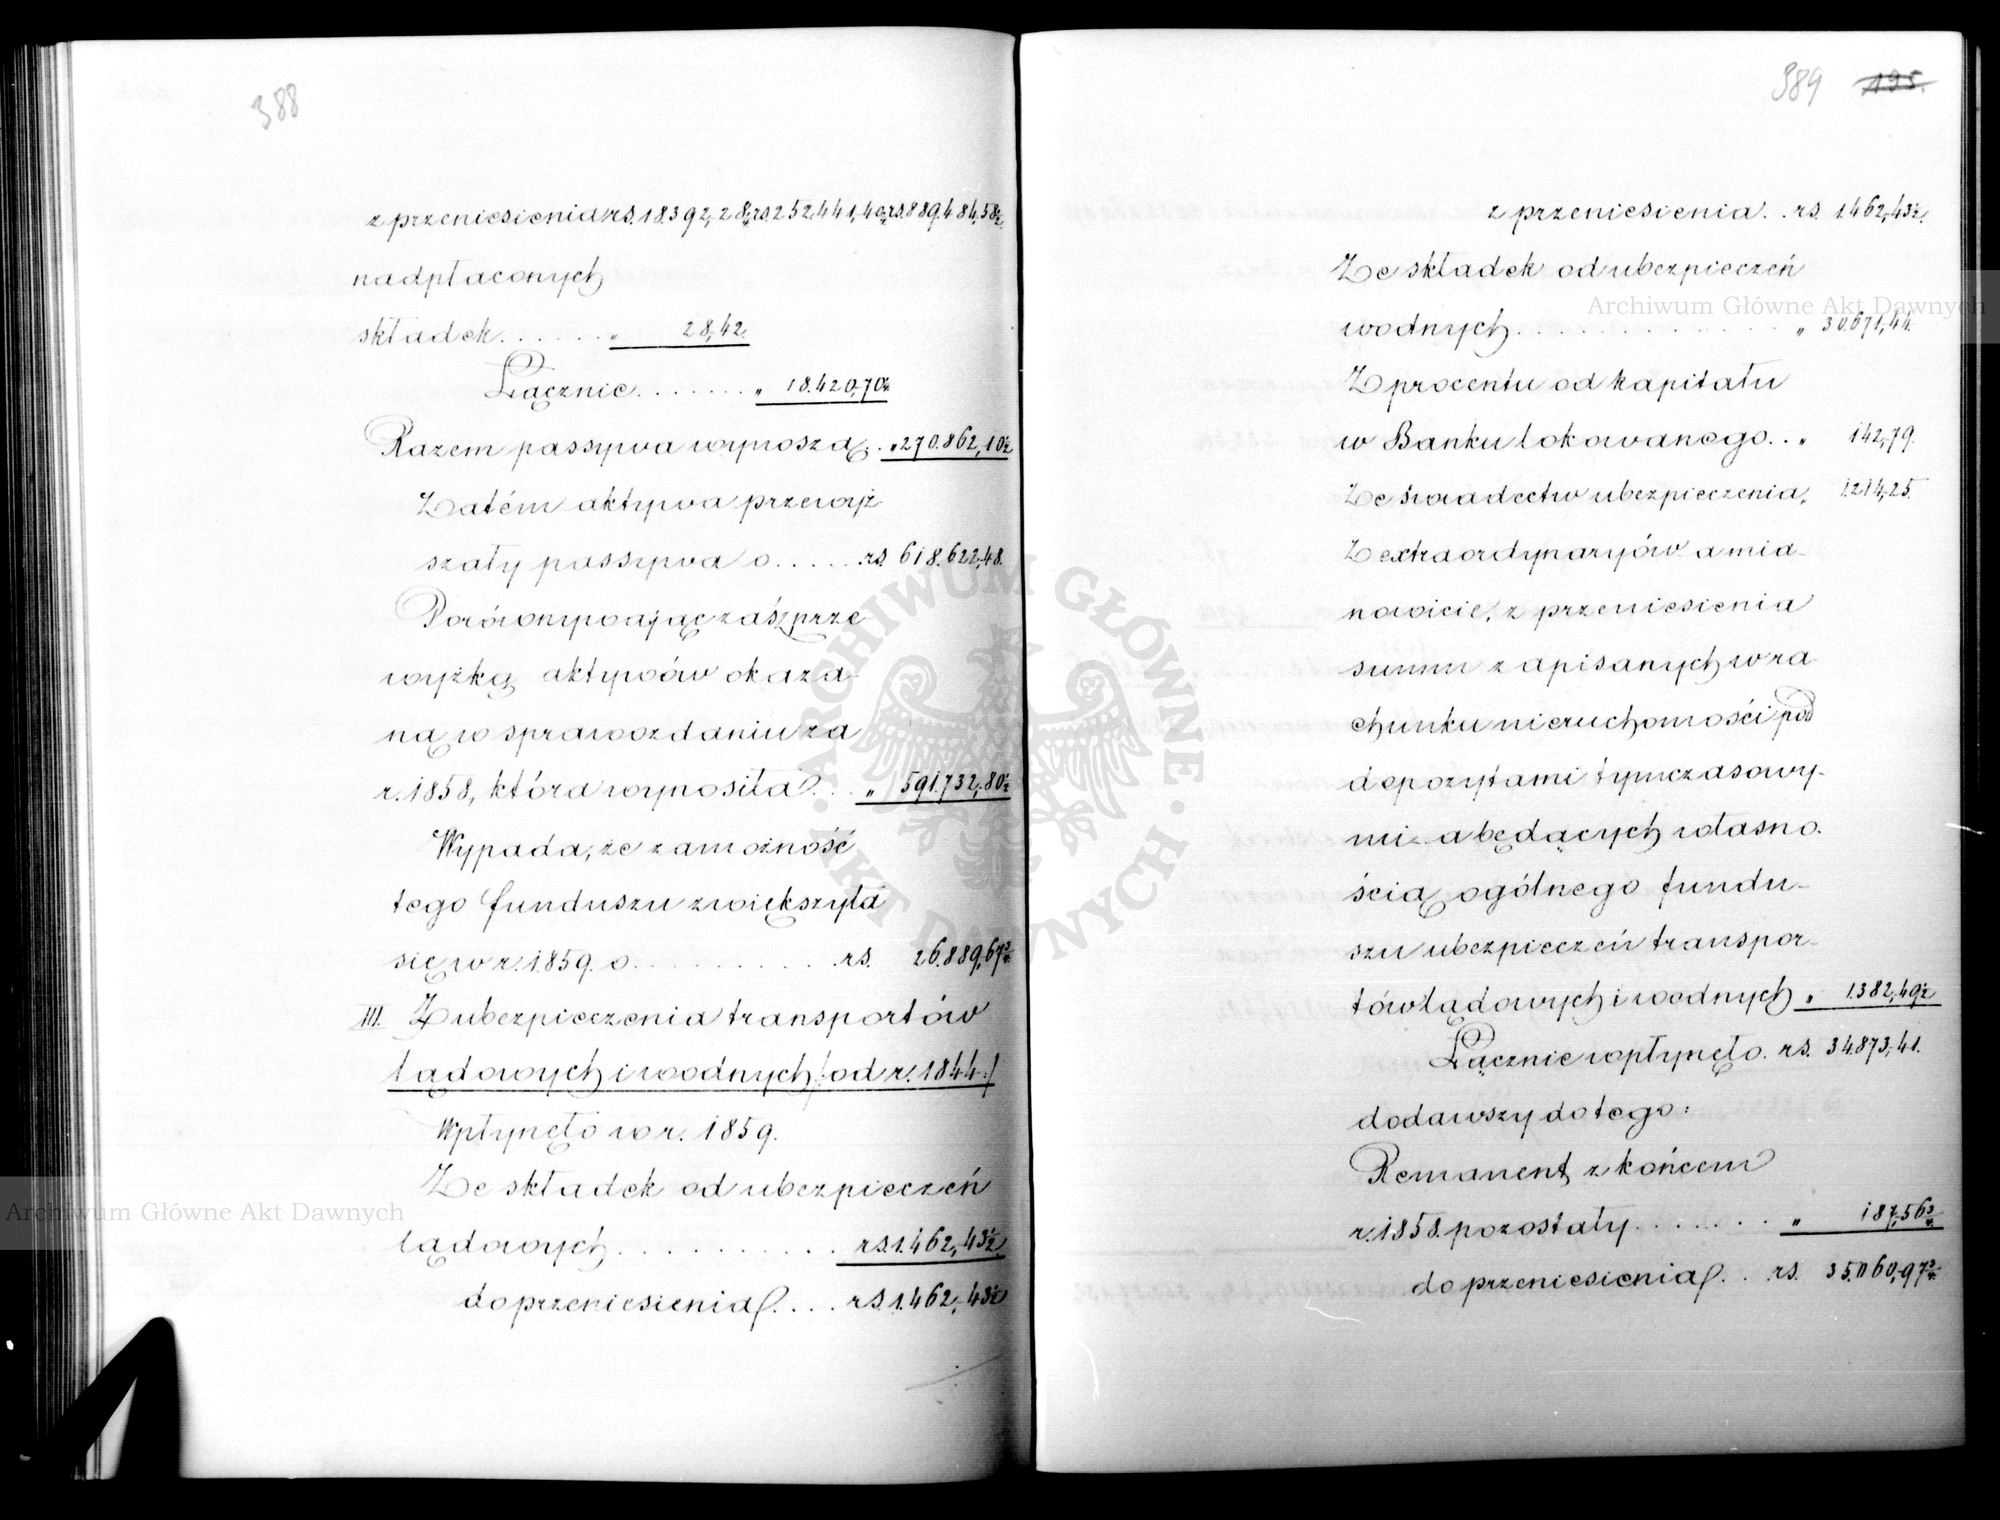 388
z przeniesienia rs. 18392,28 rs. 252,441,40 rs. 889.484,58½
nadpłaconych
składek . . . . . . „ 28,42.
Łącznie . . . . . . . „ 18.420,70½
Razem passywa wynoszą . . „ 270.862,10½
Zatém aktywa przewyż
szały passywa o . . . . . rs. 618.622,48.
Porównywając zaś prze
wyżkę aktywów okaza-
ną w sprawozdaniu za
r. 1858, która wynosiła . . . „ 591.732,80¼
Wypada, że zamożność
tego funduszu zwiększyła
się w r. 1859. o . . . . . . . . . . rs. 26.889,67¾
III. Z ubezpieczenia transportów
lądowych i wodnych /: od r. 1844 :/
Wpłynęło w r. 1859.
Ze składek od ubezpieczeń
lądowych . . . . . . . . . . . rs. 1.462,43½
do przeniesienia . . . . rs. 1.462,43½
389 195.
z przeniesienia . . rs. 1.462,43½.
Ze składek od ubezpieczeń
wodnych . . . . . . . . . . . . . . „ 30.671,44.
Z procentu od kapitału
w Banku lokowanego . . „ 142,79.
Ze świadectw ubezpieczenia „ 1.214,25.
Z extraordynaryów a mia-
nowicie, z przeniesienia
summ zapisanych w ra
chunku nieruchomości pod
depozytami tymczasowy-
mi a będących własno-
ścią ogólnego fundu-
szu ubezpieczeń transpor-
tów lądowych i wodnych „ 1.382,49½
Łącznie wpłynęło . rs. 34.873,41.
dodawszy do tego:
Remanent z końcem
r. 1858. pozostały . . . . . . . „ 187,56¾
do przeniesienia . . rs. 35.060,97¾
Archiwum Główne Akt Dawnych
Archiwum Główne Akt Dawnych
ARCHIWUM GŁÓWNE · AKT DAWNYCH ·